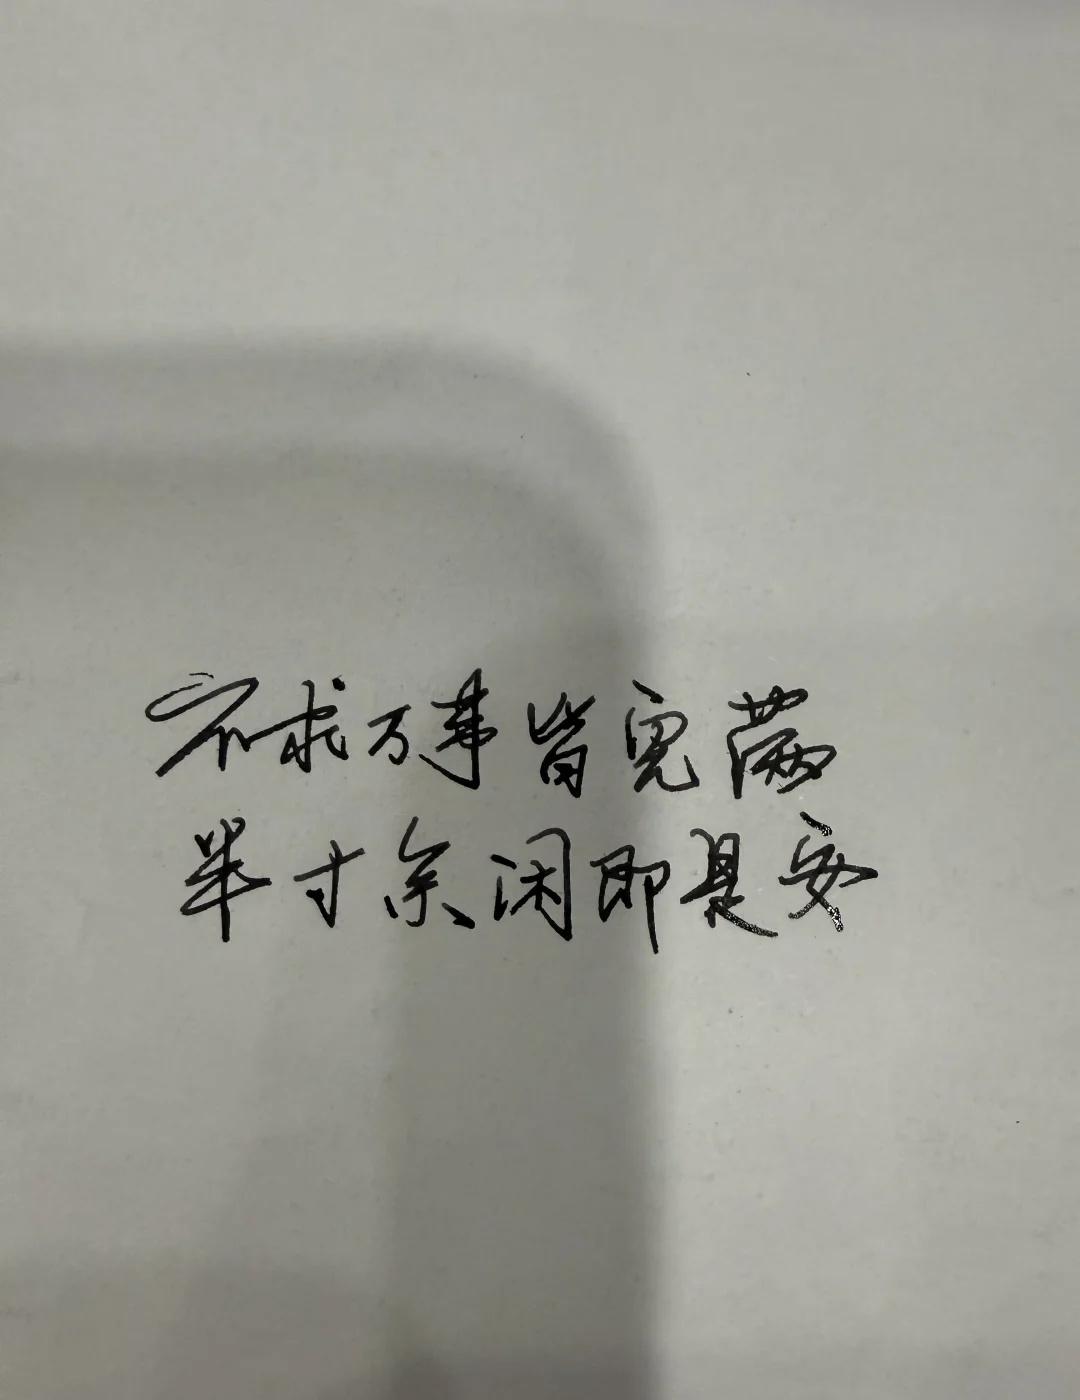 不求万事皆完满
半寸余闲即是安